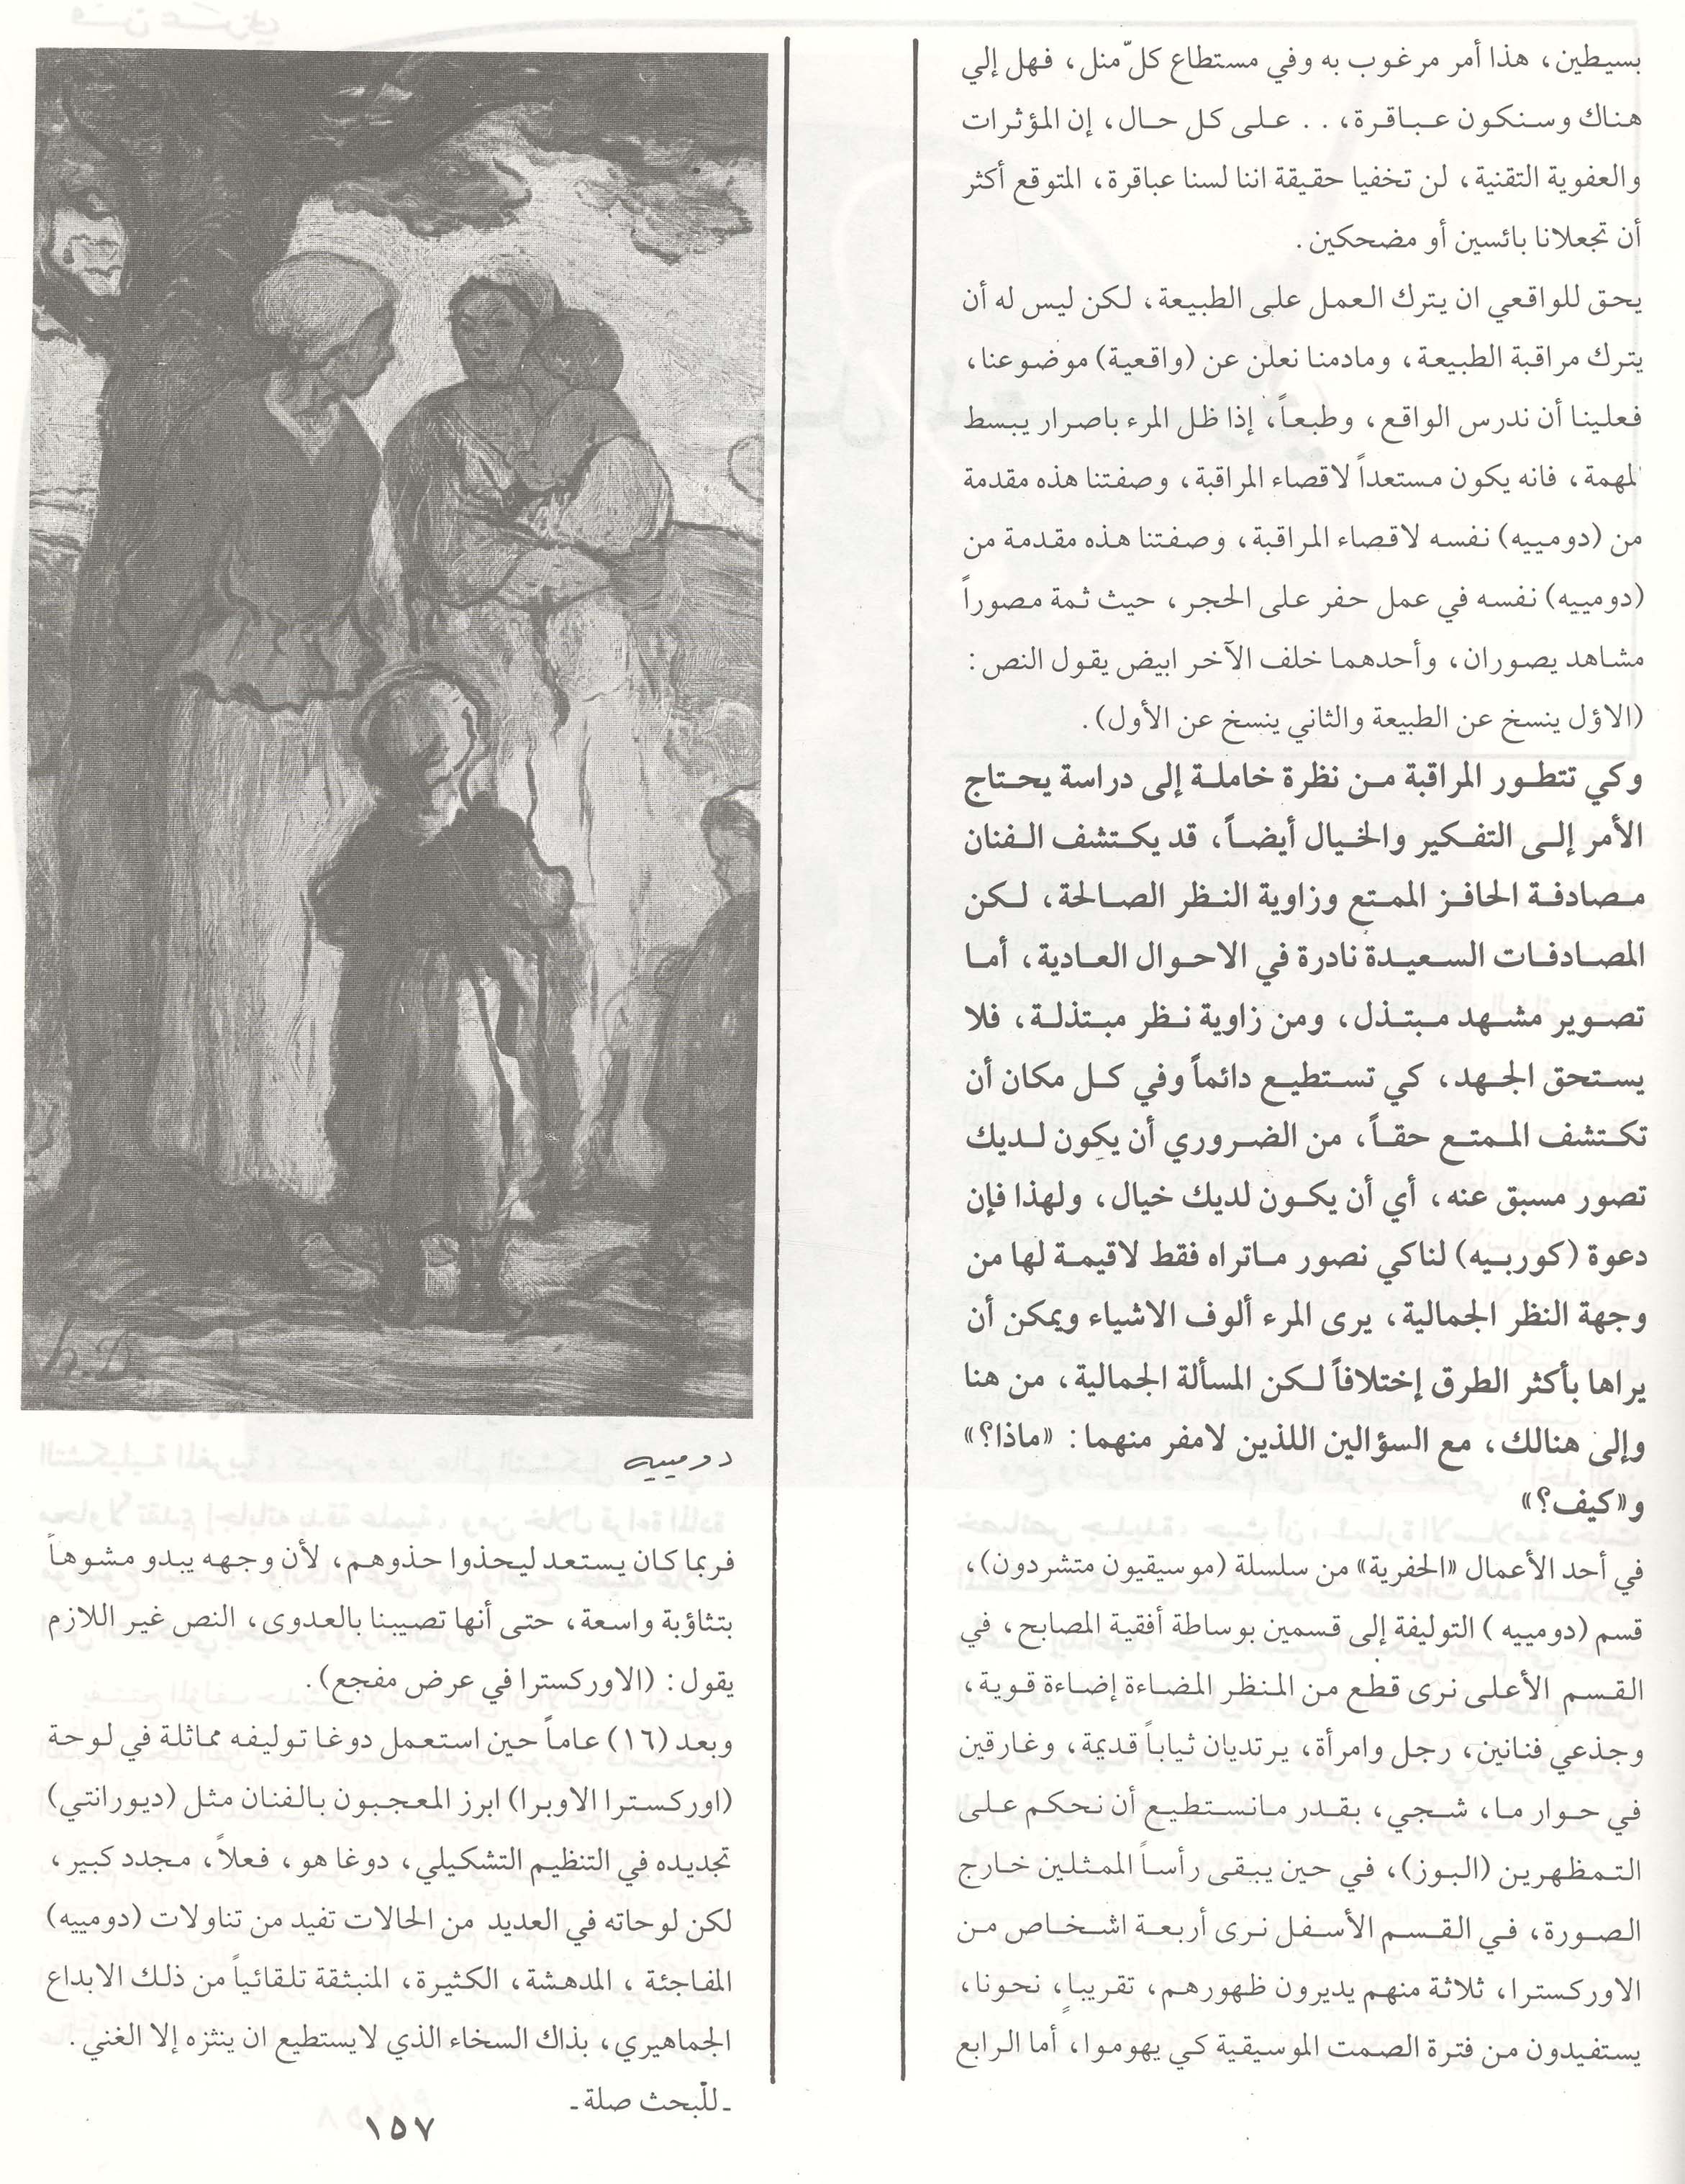 بسيطين، هذا أمر مرغوب به وفي مستطاع كلّ منل، فهل إلي
هناك وسنكون عباقرة، . . على كل حال، إن المؤثرات
والعفوية التقنية، لن تخفيا حقيقة اننا لسنا عباقرة، المتوقع أكثر
أن تجعلانا بائسين أو مضحكين.
يحق للواقعي ان يترك العمل على الطبيعة، لكن ليس له أن
يترك مراقبة الطبيعة، ومادمنا نعلن عن (واقعية) موضوعنا،
فعلينا أن ندرس الواقع، وطبعاً، إذا ظل المرء باصرار يبسط
لمهمة، فانه يكون مستعداً لاقصاء المراقبة، وصفتنا هذه مقدمة
من (دومييه) نفسه لاقصاء المراقبة، وصفتنا هذه مقدمة من
(دومييه) نفسه في عمل حفر على الحجر، حيث ثمة مصوراً
مشاهد يصوران، وأحدهما خلف الآخر ابيض يقول النص:
(الاؤل ينسخ عن الطبيعة والثاني ينسخ عن الأول).
وكي تتطور المراقبة من نظرة خاملة إلى دراسة يحتاج
الأمر إلى التفكير والخيال أيضاً، قد يكتشف الفنان
مصادفة الحافز الممتع وزاوية النظر الصالحة، لكن
المصادفات السعيدة نادرة في الاحوال العادية، أما
تصوير مشهد مبتذل، ومن زاوية نظر مبتذلة، فلا
يستحق الجهد، كي تستطيع دائماً وفي كل مكان أن
تكتشف الممتع حقاً، من الضروري أن يكون لديك
تصور مسبق عنه، أي أن يكون لديك خيال، ولهذا فإن
دعوة (كوربيه) لناكي نصور ماتراه فقط لاقيمة لها من
وجهة النظر الجمالية، يرى المرء ألوف الاشياء ويمكن أن
يراها بأكثر الطرق إختلافاً لكن المسألة الجمالية، من هنا
وإلى هنالك، مع السؤالين اللذين لامفر منهما: «ماذا؟»
و«كيف؟»
في أحد الأعمال «الحفرية» من سلسلة (موسيقيون متشردون)،
قسم (دومييه ) التوليفة إلى قسمين بوساطة أفقية المصابح، في
القسم الأعلى نرى قطع من المنظر المضاءة إضاءة قوية،
وجذعي فنانين، رجل وامرأة، يرتديان ثياباً قديمة، وغارقين
في حوار ما، شجي، بقدر مانستطيع أن نحكم على
التمظهرين (البوز)، في حين يبقى رأساً الممثلين خارج
الصورة، في القسم الأسفل نرى أربعة اشخاص من
الاوركسترا، ثلاثة منهم يديرون ظهورهم، تقريباً، نحونا،
يستفيدون من فترة الصمت الموسيقية كي يهوموا، أما الرابع
h.D.
دومييه
فربما كان يستعد ليحذوا حذوهم، لأن وجهه يبدو مشوهاً
بتثاؤبة واسعة، حتى أنها تصيبنا بالعدوى، النص غير اللازم
يقول: (الاوركسترا في عرض مفجع).
وبعد (١٦) عاماً حين استعمل دوغا توليفه مماثلة في لوحة
(اوركسترا الاوبرا) ابرز المعجبون بالفنان مثل (ديورانتي)
تجديده في التنظيم التشكيلي، دوغا هو، فعلاً، مجدد كبير،
لكن لوحاته في العديد من الحالات تفيد من تناولات (دومييه)
المفاجئة ، المدهشة، الكثيرة، المنبثقة تلقائياً من ذلك الابداع
الجماهيري، بذاك السخاء الذي لايستطيع ان ينثزه إلا الغني.
ـ للّبحث صلة ـ
١٥٧